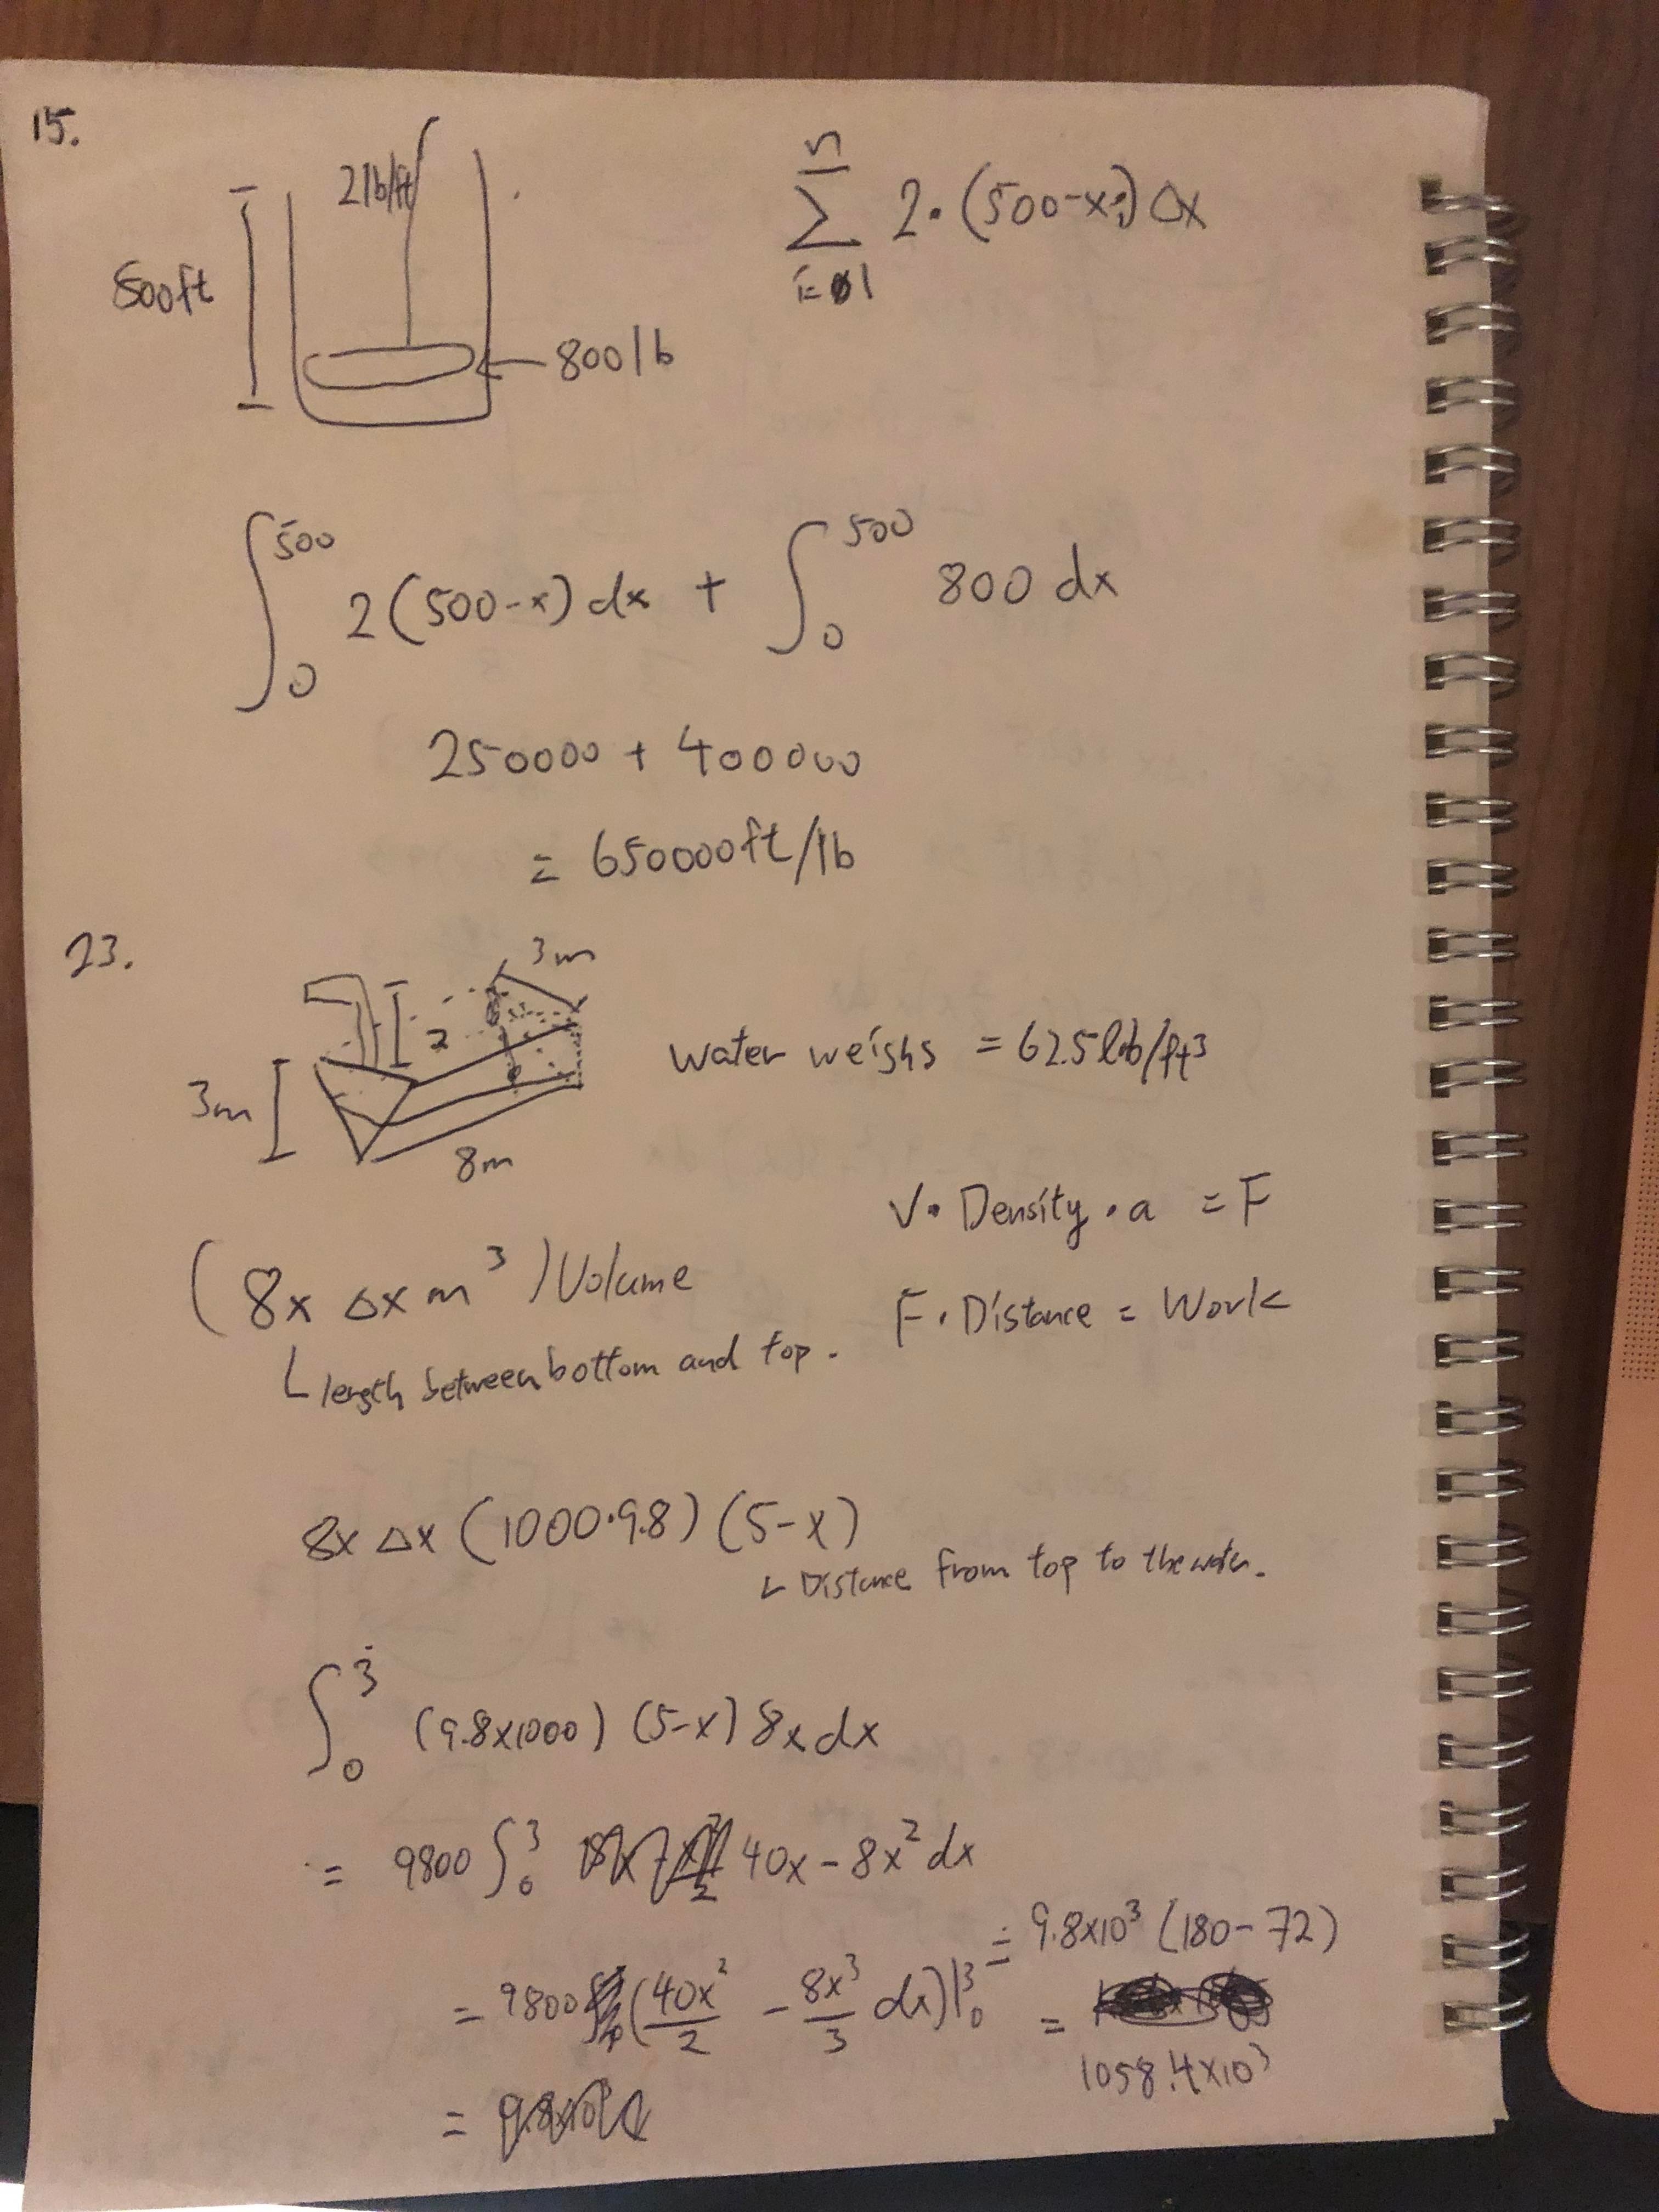 15.
2lb/ft
500ft
800lb
n
∑ 2·(500-xi)Δx
i=1
∫₀⁵⁰⁰ 2(500-x)dx + ∫₀⁵⁰⁰ 800 dx
250000 + 400000
= 650000ft/lb
23.
3m
2
3m
8m
water weighs = 62.5lb/ft³
V·Density·a = F
(8x Δx m³)Volume
F·Distance = Work
length between bottom and top.
8x Δx (1000·9.8) (5-x)
Distance from top to the water.
∫₀³ (9.8x1000) (5-x) 8x dx
= 9800 ∫₀³ 40x - 8x² dx
= 9800 (40x²/2 - 8x³/3 dx)|₀³ = 9.8x10³ (180-72)
= 1058.4x10³
=